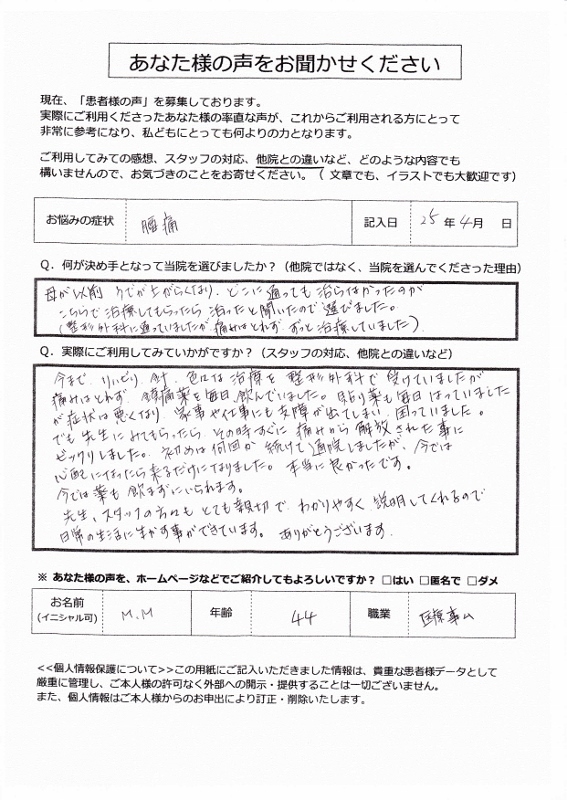 あなた様の声をお聞かせください
現在、「患者様の声」を募集しております。
実際にご利用くださったあなた様の率直な声が、これからご利用される方にとって
非常に参考になり、私どもにとっても何よりの力となります。
ご利用してみての感想、スタッフの対応、他院との違いなど、どのような内容でも
構いませんので、お気づきのことをお寄せください。（ 文章でも、イラストでも大歓迎です）
お悩みの症状 腰痛 記入日 25 年 4 月 日
Q．何が決め手となって当院を選びましたか？（他院ではなく、当院を選んでくださった理由）
母が以前 うでが上がらなくなり、どこに通っても治らなかったのが
こちらで治療してもらったら 治ったと聞いたので 選びました。
（整形外科に通っていましたが 痛みはとれず、ずっと治療していました）
Q．実際にご利用してみていかがですか？（スタッフの対応、他院との違いなど）
今まで、リハビリ、針、色々な治療を 整形外科で 受けていましたが
痛みはとれず、鎮痛薬を毎日 飲んでいました。貼り薬も毎日 はっていました
が症状は悪くなり、家事や仕事にも支障が出てしまい、困っていました。
でも先生にみてもらったら、その時すぐに 痛みから 解放された事に
ビックリしました。初めは何回か 続けて通院しましたが、今では
心配になったら来るだけになりました。本当に良かったです。
今では薬も飲まずにいられます。
先生、スタッフの方々も とても親切で、わかりやすく 説明してくれるので
日常の生活に生かす事ができています。 ありがとうございます
※ あなた様の声を、ホームページなどでご紹介してもよろしいですか？ □はい □匿名で □ダメ
お名前 (イニシャル可) M.M 年齢 44 職業 医療事ム
<<個人情報保護について>>この用紙にご記入いただきました情報は、貴重な患者様データとして
厳重に管理し、ご本人様の許可なく外部への開示・提供することは一切ございません。
また、個人情報はご本人様からのお申出により訂正・削除いたします。